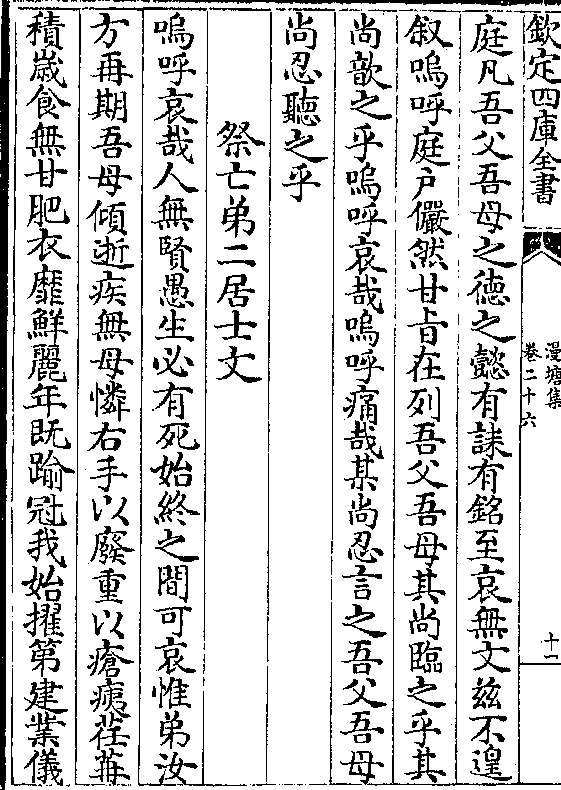 欽定四庫全書
漫塘集
卷二十六
十一
庭凡吾父吾母之徳之懿有誄有銘至哀無文兹不遑
叙嗚呼庭户儼然甘㫖在列吾父吾母其尚臨之乎其
尚歆之乎嗚呼哀哉嗚呼痛哉某尚忍言之吾父吾母
尚忍聽之乎
祭亡弟二居士文
嗚呼哀哉人無賢愚生必有死始終之間可哀惟弟汝
方再期吾母傾逝疾無母憐右手以廢重以瘡痍荏苒
積歲食無甘肥衣靡鮮麗年既踰冠我始擢第建業儀